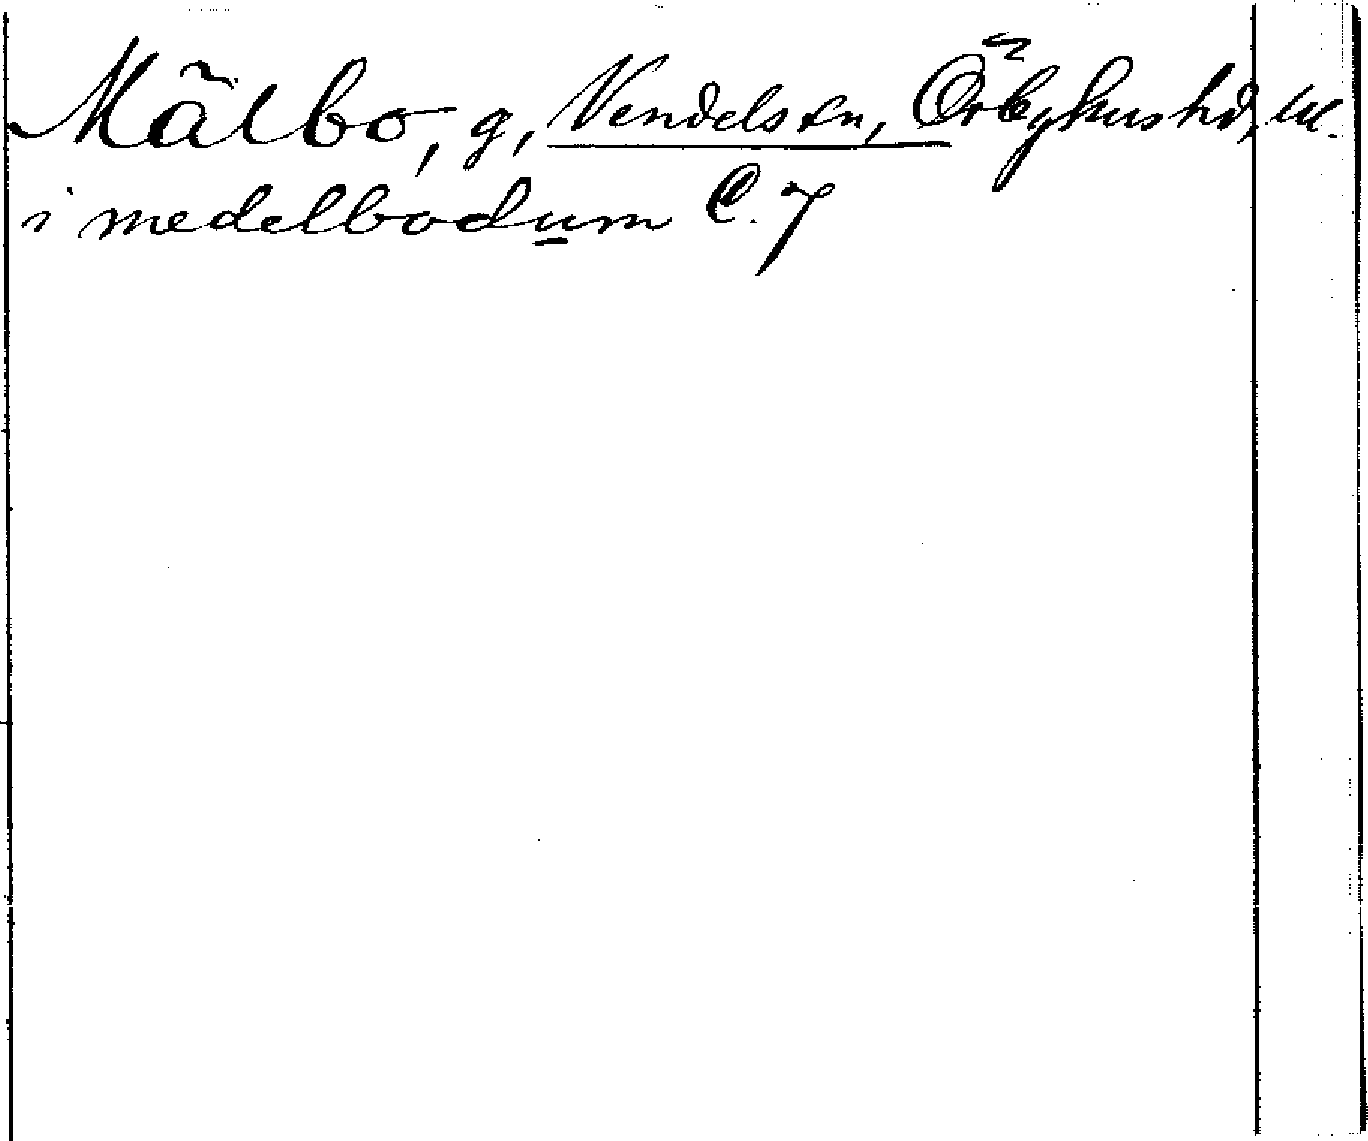 Mälbo, g, Vendels sn, Örbyhus hd, U.
i medelbodum C. 7